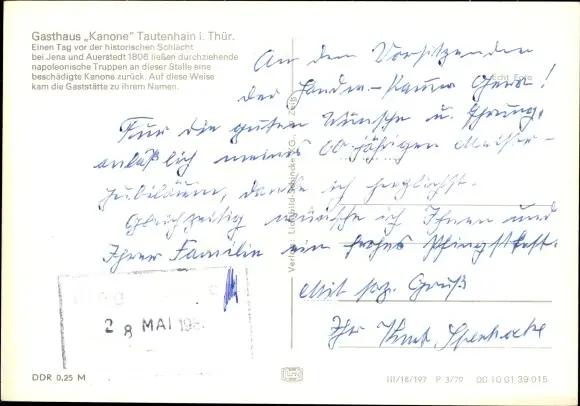 Gasthaus „Kanone" Tautenhain i. Thür.
Einen Tag vor der historischen Schlacht
bei Jena und Auerstedt 1806 ließen durchziehende
napoleonische Truppen an dieser Stelle eine
beschädigte Kanone zurück. Auf diese Weise
kam die Gaststätte zu ihrem Namen.
An den Vorsitzenden
der Handw.-Kammer Gera!
Echt Foto
Für die guten Wünsche u. Ehrung,
anläßlich meines 60 jährigen Meister-
Jubiläum, danke ich herzlichst.
Gleichzeitig wünsche ich Ihnen und
Ihrer Familie ein frohes Pfingstfest.
Mit soz. Gruß
Ihr Kurt
Verlag: Lichtbild
28 MAI 198
DDR 0,25 M
III/18/197 P 3/79 00 10 01 39 015